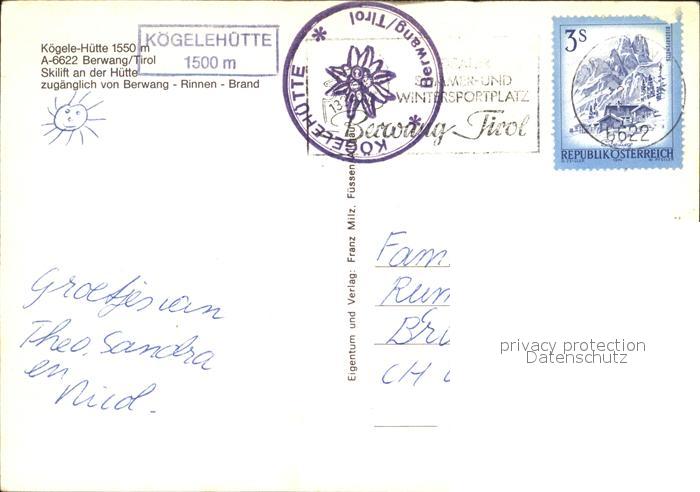 Kögele-Hütte 1550 m
A-6622 Berwang/Tirol
Skilift an der Hütte
zugänglich von Berwang - Rinnen - Brand
KÖGELEHÜTTE
1500 m
KÖGELEHÜTTE * Berwang/Tirol *
SOMMER-UND
WINTERSPORTPLATZ
Berwang Tirol
3S
6622
REPUBLIK ÖSTERREICH
Eigentum und Verlag: Franz Milz, Füssen
Groetjes van
Theo, Sandra
en
Nicol.
Fam.
CH
privacy protection
Datenschutz